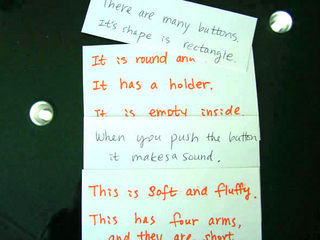 There are many buttons.
It's shape is rectangle.
It is round
It has a holder.
It is empty inside.
When you push the button
it makes a sound.
This is Soft and fluffy.
This has four arms,
and they are short